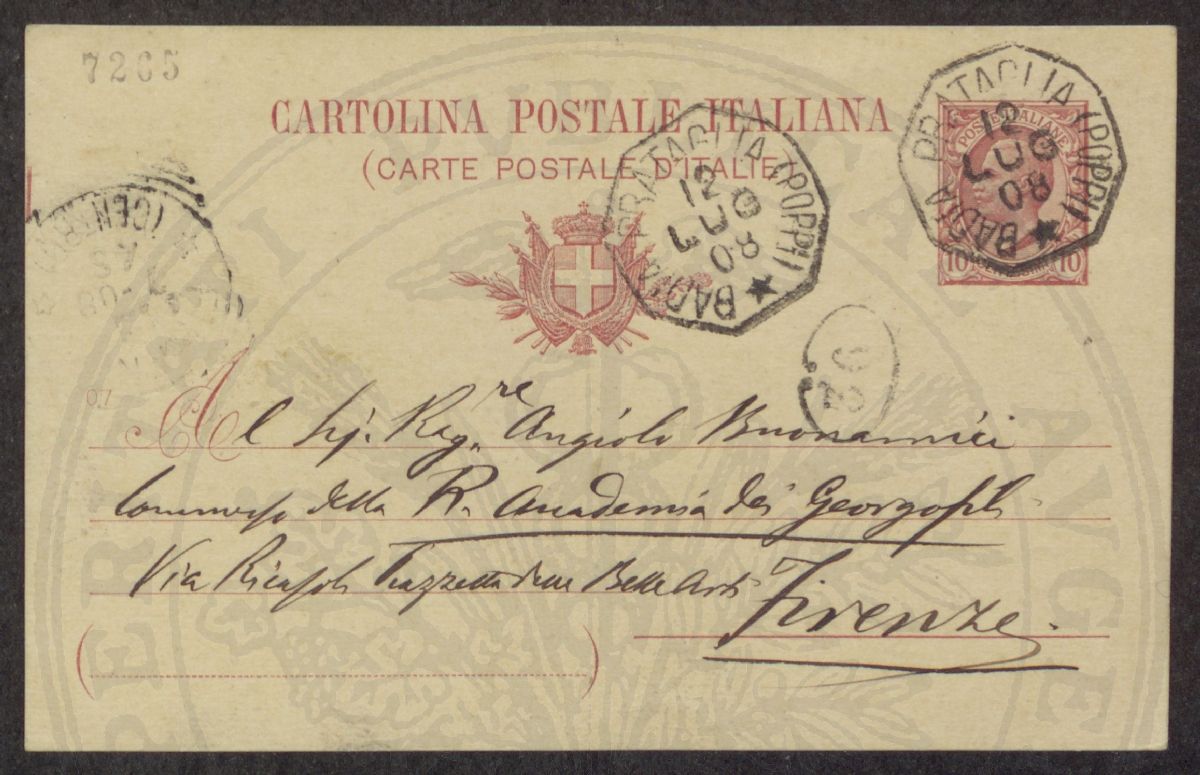 7265
CARTOLINA POSTALE ITALIANA
(CARTE POSTALE D'ITALIE)
BADIA PRATAGLIA (POPPI)
12
LUG
08
BADIA PRATAGLIA (POPPI)
12
LUG
08
POSTE ITALIANE
10 10
(CENTRO)
36
07
Al Sig. Rag.re Angiolo Buonamici
Commesso della R. Accademia dei Georgofili
Via Ricasoli Piazzetta delle Belle Arti
Firenze